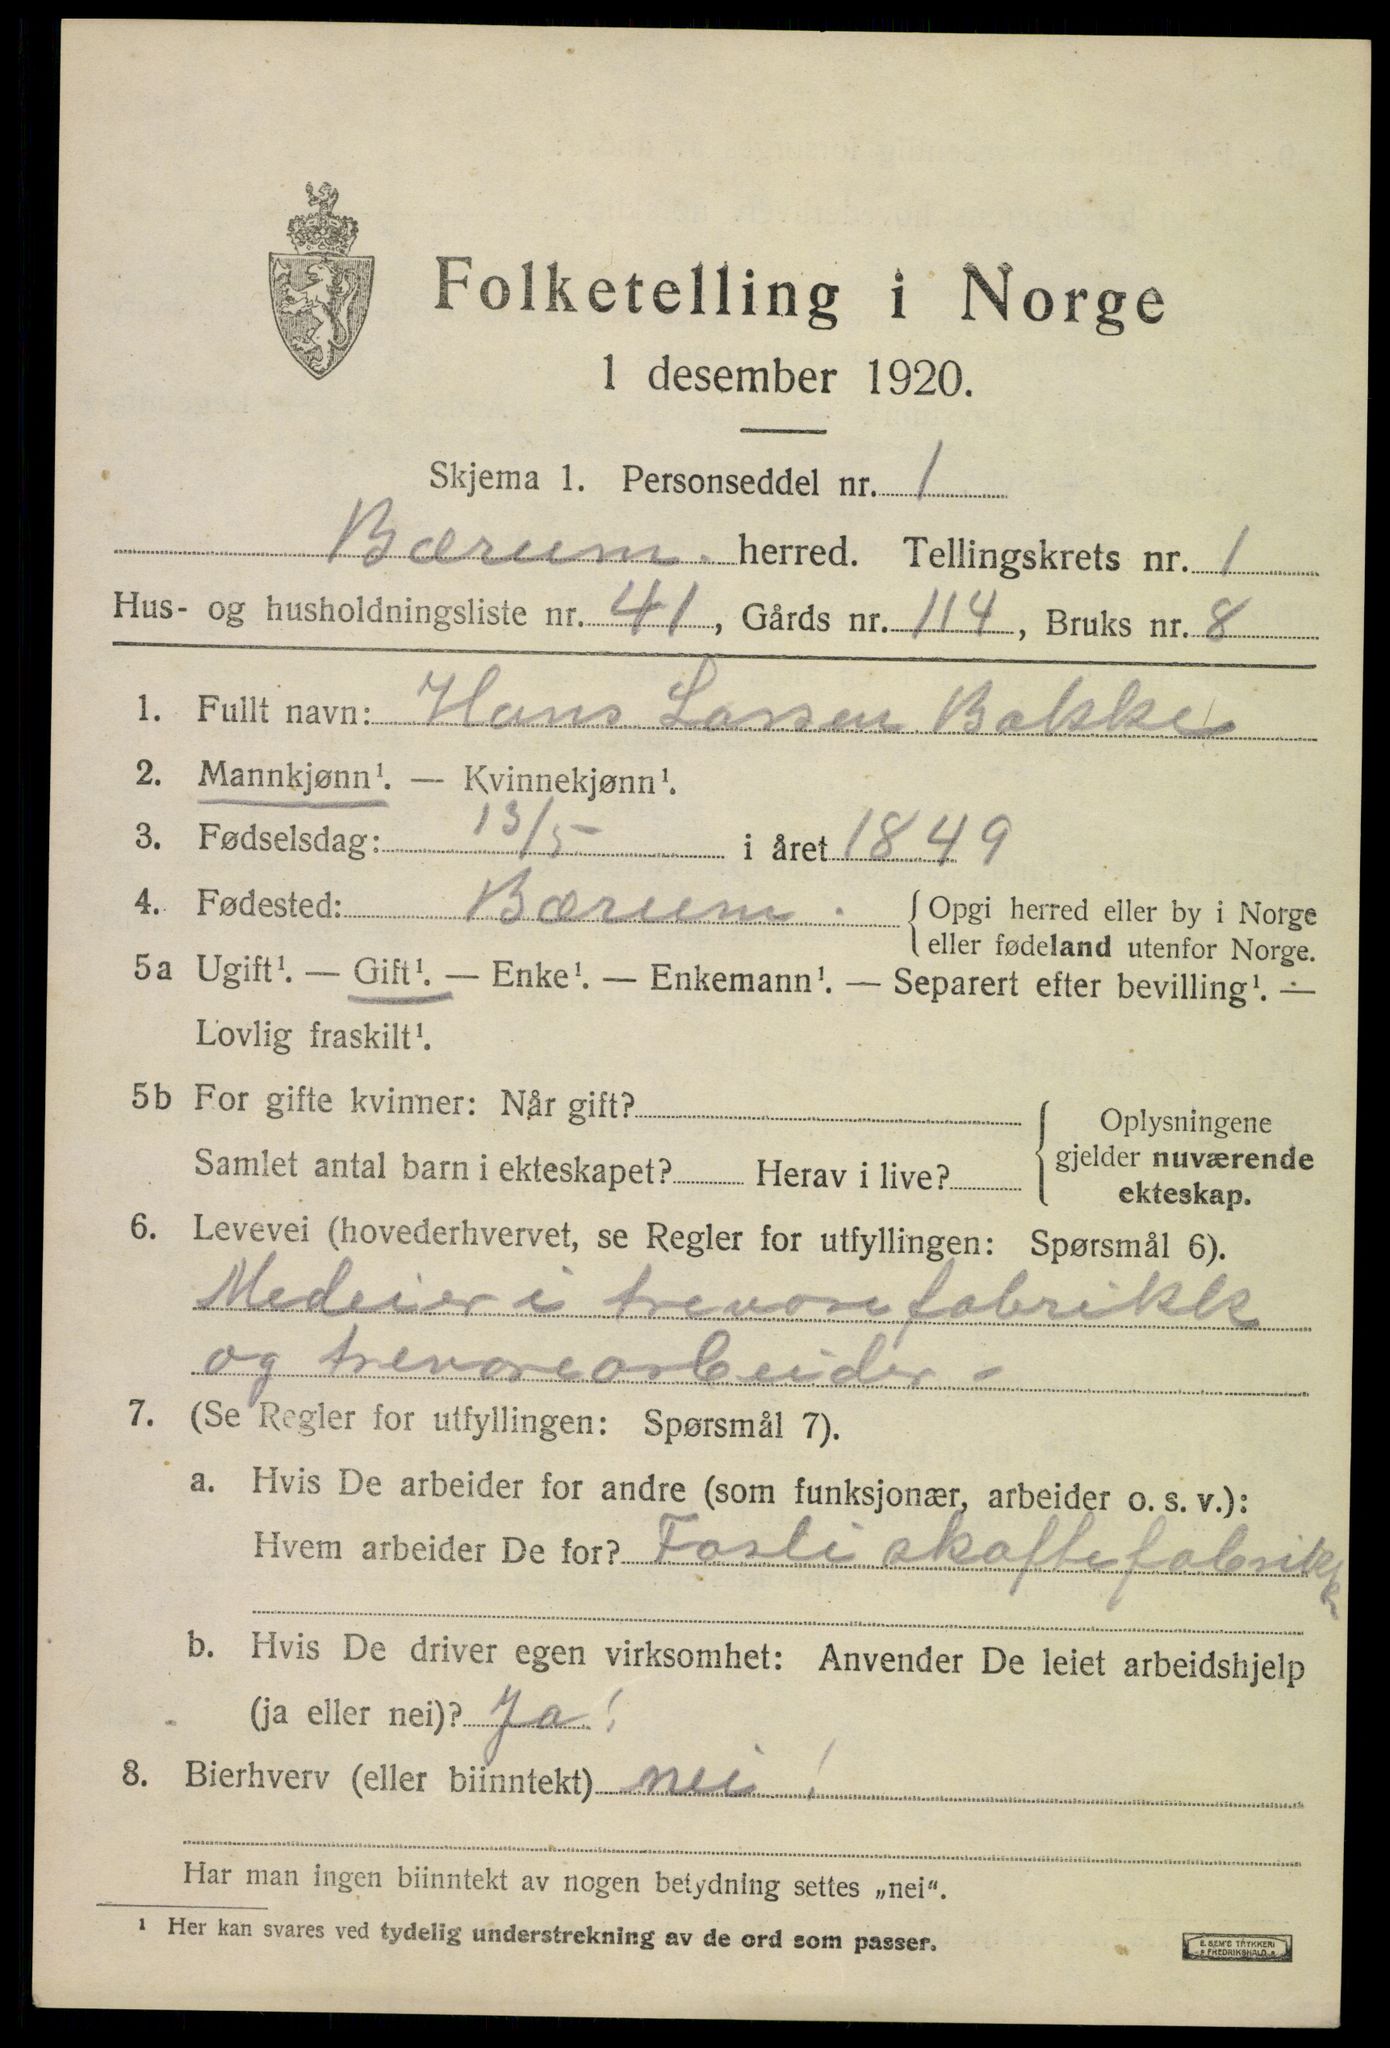 Folketelling i Norge
1 desember 1920.
Skjema 1. Personseddel nr. 1
Bærum. herred. Tellingskrets nr. 1
Hus- og husholdningsliste nr. 41, Gårds nr. 114, Bruks nr. 8
1. Fullt navn: Hans Larsen Bakke
2. Mannkjønn¹. — Kvinnekjønn¹.
3. Fødselsdag: 13/5 i året 1849
4. Fødested: Bærum. { Opgi herred eller by i Norge
eller fødeland utenfor Norge.
5a Ugift¹. — Gift¹. — Enke¹. — Enkemann¹. — Separert efter bevilling¹. —
Lovlig fraskilt¹.
5b For gifte kvinner: Når gift?
Samlet antal barn i ekteskapet? Herav i live?
Oplysningene
gjelder nuværende
ekteskap.
6. Levevei (hovederhvervet, se Regler for utfyllingen: Spørsmål 6).
Medeier i trevarefabrikk
og trevarearbeider -
7. (Se Regler for utfyllingen: Spørsmål 7).
a. Hvis De arbeider for andre (som funksjonær, arbeider o. s. v.):
Hvem arbeider De for? Fosli skaftefabrikk
b. Hvis De driver egen virksomhet: Anvender De leiet arbeidshjelp
(ja eller nei)? Ja!
8. Bierhverv (eller biinntekt) nei!
Har man ingen biinntekt av nogen betydning settes „nei".
¹ Her kan svares ved tydelig understrekning av de ord som passer.
E. SEM'S TRYKKERI
FREDRIKSHALD